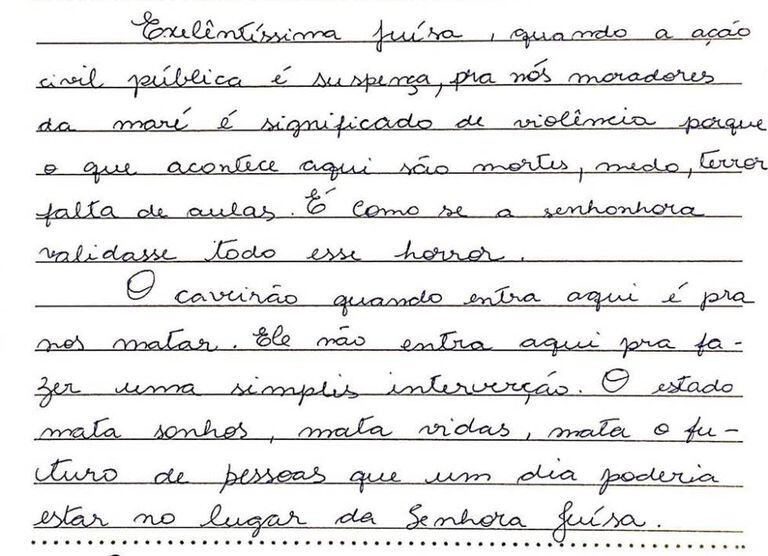 Exelêntíssima juísa, quando a ação
civil pública é suspença, pra nós moradores
da maré é significado de violência porque
o que acontece aqui são mortes, medo, terror
falta de aulas. É como se a senhonhora
validasse todo esse horror.
O caveirão quando entra aqui é pra
nos matar. Ele não entra aqui pra fa-
zer uma simplis interverção. O estado
mata sonhos, mata vidas, mata o fu-
turo de pessoas que um dia poderia
estar no lugar da Senhora juísa.